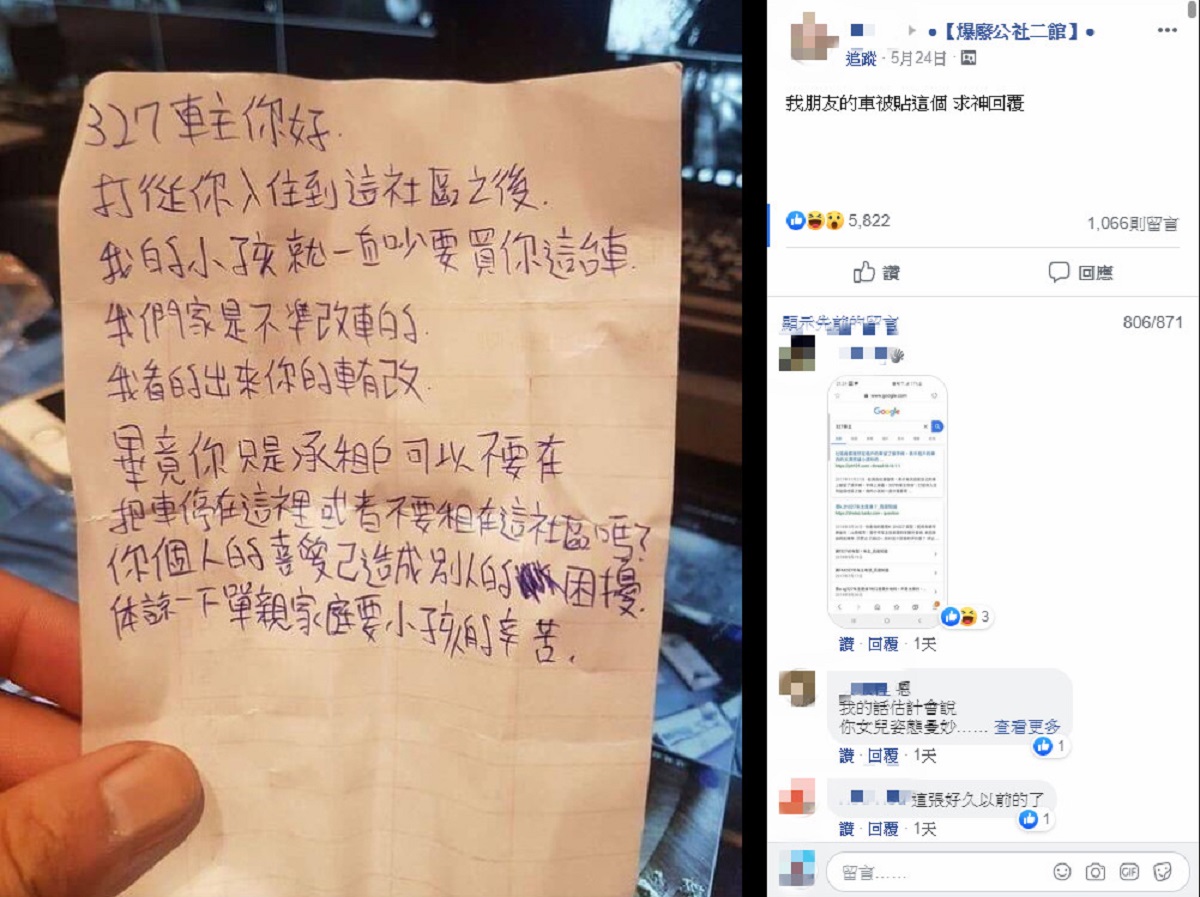 327車主你好.
打從你入住到這社區之後.
我的小孩就一直吵要買你這台車.
我們家是不準改車的.
我看的出來你的車有改.
畢竟你只是承租戶可以不要在
把車停在這裡或者不要租在這社區嗎?
你個人的喜愛已造成別人的困擾.
体諒一下單親家庭要小孩的辛苦.
•【爆廢公社二館】•
追蹤 · 5月24日
我朋友的車被貼這個 求神回覆
5,822
1,066則留言
讚
回應
顯示先前的留言
806/871
Google
3
讚 · 回覆 · 1天
我的話估計會說
你女兒姿態曼妙…… 查看更多
1
讚 · 回覆 · 1天
這張好久以前的了
1
讚 · 回覆 · 1天
留言……
GIF